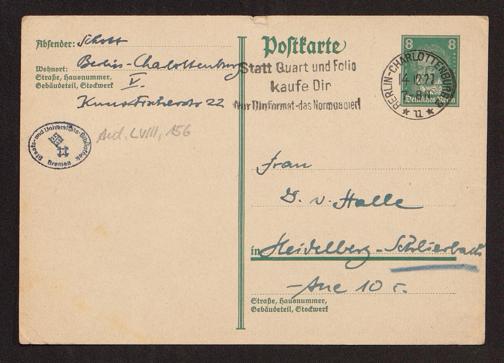 Absender: Schott
Wohnort: Berlin-Charlottenburg
Straße, Hausnummer,
Gebäudeteil, Stockwerk
V.
Kuno Fischerstr 22
Aut. LVIII, 156
Staats- und Universitäts-Bibliothek
Bremen
Postkarte
Statt Quart und Folio
kaufe Din
Nur Dinformat - das Normausie!
BERLIN-CHARLOTTENBURG
14.12.27
7-8 N
* 11 *
8 8
Deutsches Reich
Frau
D. v. Halle
in Heidelberg-Schlierbach
Aue 10 c.
Straße, Hausnummer,
Gebäudeteil, Stockwerk